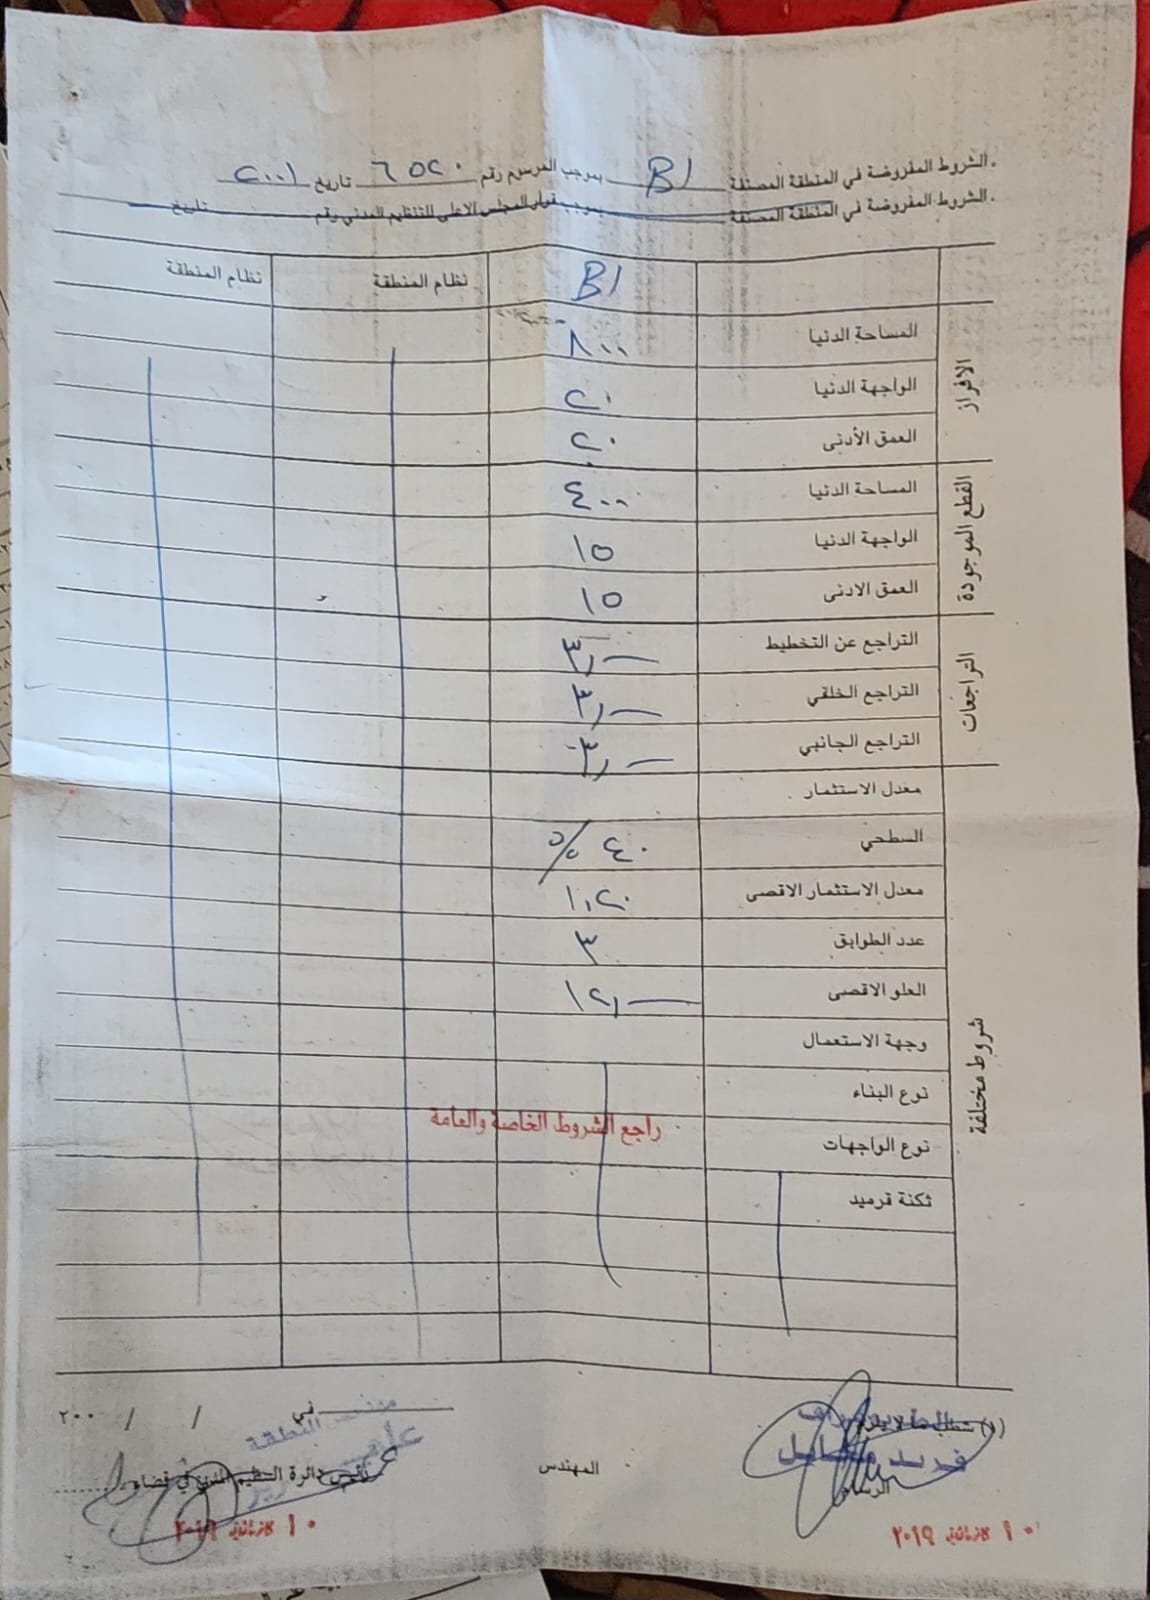 . الشروط المفروضة في المنطقة المصنفة B1 بموجب المرسوم رقم ٦٥٢٠ تاريخ ٢٠٠١
. الشروط المفروضة في المنطقة المصنفة بموجب قرار المجلس الاعلى للتنظيم المدني رقم تاريخ
B1 نظام المنطقة نظام المنطقة
الافراز
المساحة الدنيا ٨٠٠
الواجهة الدنيا ٢٠
العمق الأدنى ٢٠
القطع الموجودة
المساحة الدنيا ٤٠٠
الواجهة الدنيا ١٥
العمق الادنى ١٥
التراجعات
التراجع عن التخطيط ٣,—
التراجع الخلفي ٣,—
التراجع الجانبي ٣,—
شروط مختلفة
معدل الاستثمار
السطحي ٤٠ %
معدل الاستثمار الاقصى ١,٢٠
عدد الطوابق ٣
العلو الاقصى ١٢,—
وجهة الاستعمال
نوع البناء
راجع الشروط الخاصة والعامة
نوع الواجهات
ثكنة قرميد
(١) شطب ما لا يلزم
في / / ٢٠٠
فريد
الرسام
المهندس
المنطقة
رئيس دائرة التنظيم المدني في قضاء
١٠ كانون ثاني ٢٠١٩
١٠ كانون ثاني ٢٠١٩